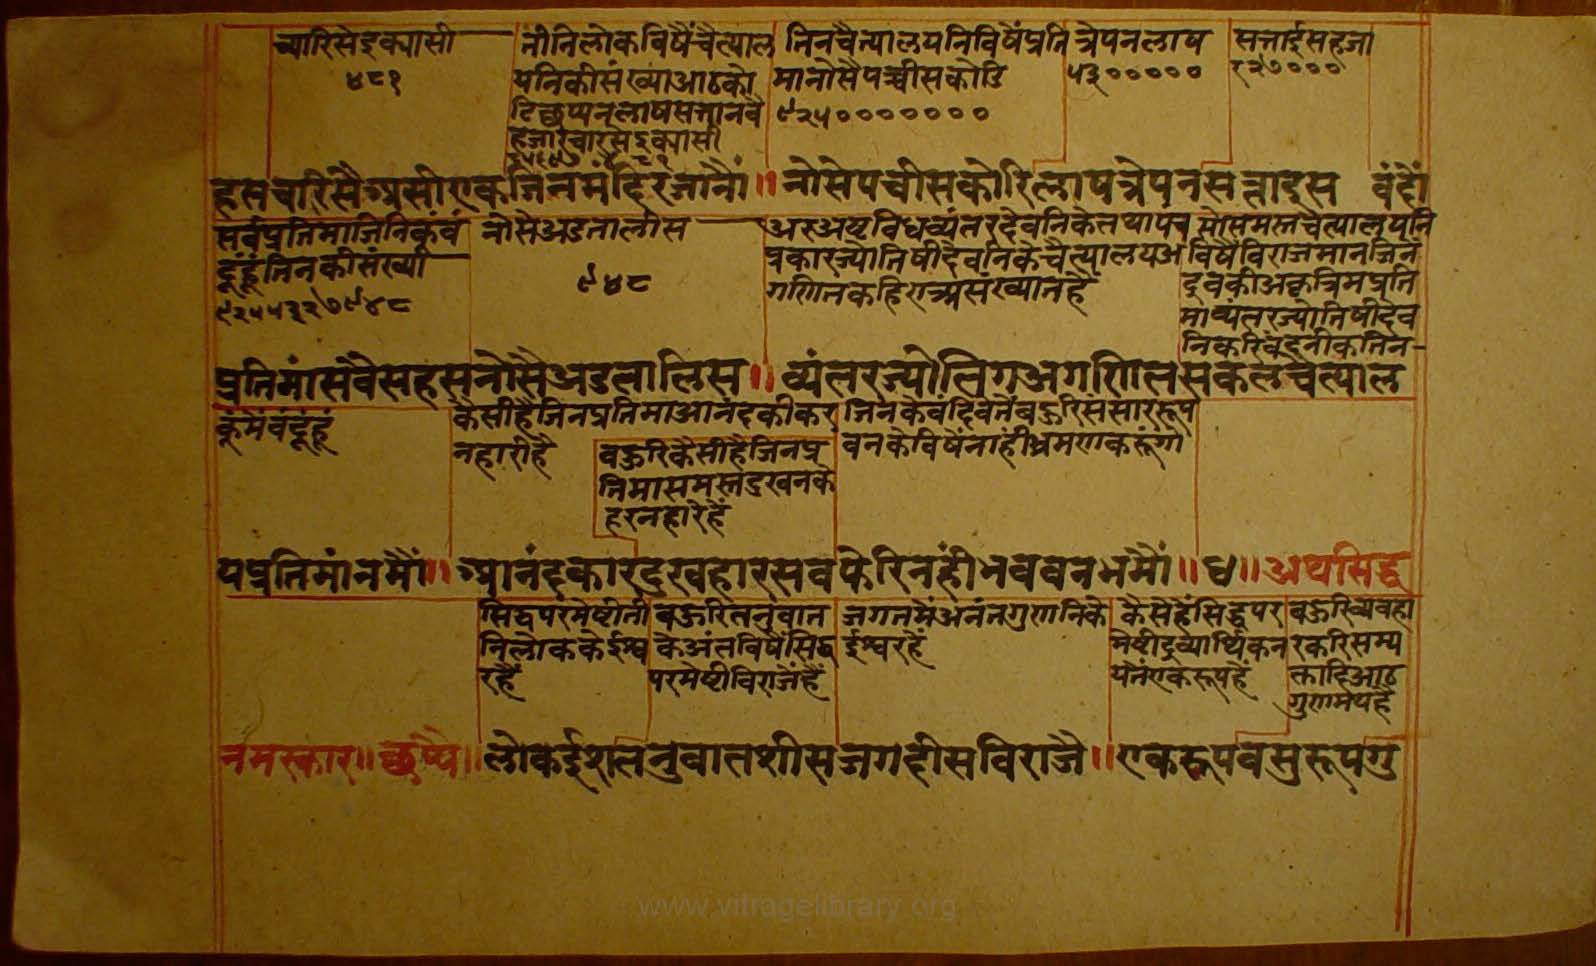 च्यारिसैइक्यासी
४८१
तीनिलोकविषैंचैत्याल
यनिकीसंख्याआठको
टिछप्पनलाषसत्तानवै
हजारचारसैइक्यासी
तिनचैत्यालयनिविषैंप्रति
मानोसैपच्चीसकोडि
९२५०००००००
त्रेपनलाष
५३०००००
सत्ताईसहजा
र२७०००
हसचारिसैअसीएकजिनमंदिरजानौं॥ नोसेपचीसकोरिलाषत्रेपनसत्तादूस वंदौं
सर्वप्रतिमाजिनिकूंवं
दूंहूंतिनकीसंख्या
९२५५३२७९४८
नोसैअडतालीस
९४८
अरुअष्टविधव्यंतरदेवनिकेतथापंच
प्रकारज्योतिषीदेवनिकेचैत्यालयअ
गणितकहिएअसंख्यातहै
सोसमस्तचैत्यालयनि
विषैंविराजमानजिन
देवकीअकृत्रिमप्रति
माव्यंतरज्योतिषीदेव
निकरिवंदनीकतिन
प्रतिमांसवैसहसनोसैअडतालिस॥ व्यंतरज्योतिगअगणितसकलचैत्याल
कूंमैंवंदूंहूं
कैसीहैजिनप्रतिमाआनंदकीकर
नहारीहै
बहुरिकैसीहैजिनप्र
तिमासमस्तदुखनके
हरनहारेहैं
जिनकेवंदिवेतैंबहुरिसंसाररूप
वनकेविषैंनाहींभ्रमणकरूंगा
यप्रतिमांनमौं॥ आनंदकारदुखहारसवफेरिनहींभववनभमौं॥ ध॥ अथसिद्ध
सिद्धपरमेष्टीती
निलोककेईश्व
रहैं
बहुरितनुवात
केअंतविषैंसिद्ध
परमेष्टीविराजैंहैं
जगतमेंअनंतगुणनिके
ईश्वरहैं
कैसेहैंसिद्धपर
मेष्टीद्रव्यार्थिकन
यतैंएकरूपहैं
बहुरिव्यवहा
रकरिसम्य
क्तादिआठ
गुणमयहैं
नमस्कार॥ छप्पै॥ लोकईशतनुवातशीसजगदीसविराजै॥ एकरूपवसुरूपगु
www.vitragelibrary.org